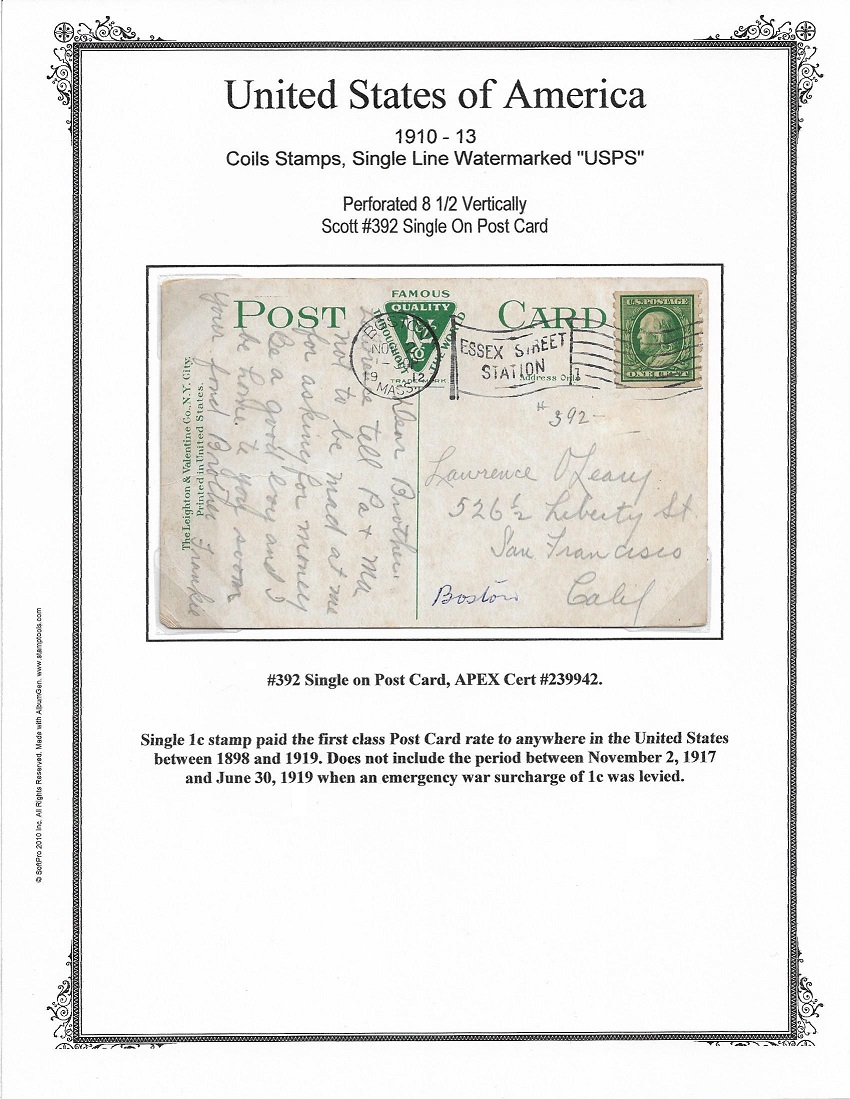 United States of America
1910 - 13
Coils Stamps, Single Line Watermarked "USPS"
Perforated 8 1/2 Vertically
Scott #392 Single On Post Card
POST CARD
FAMOUS
QUALITY
THROUGHOUT THE WORLD
TRADE MARK
BOSTON
NOV
1912
MASS.
ESSEX STREET
STATION
Address Only
U.S. POSTAGE
ONE CENT
#392-
Lawrence O'Leary
526 ½ Liberty St.
San Francisco
Calif
Boston
Dear Brother
Lawrence tell Pa + Ma
not to be mad at me
for asking for money
Be a good boy and I
be home to you soon
your fond Brother Frankie
The Leighton & Valentine Co., N.Y. City.
Printed in United States.
#392 Single on Post Card, APEX Cert #239942.
Single 1c stamp paid the first class Post Card rate to anywhere in the United States
between 1898 and 1919. Does not include the period between November 2, 1917
and June 30, 1919 when an emergency war surcharge of 1c was levied.
© SoftPro 2010 Inc. All Rights Reserved. Made with AlbumGen. www.stamptools.com